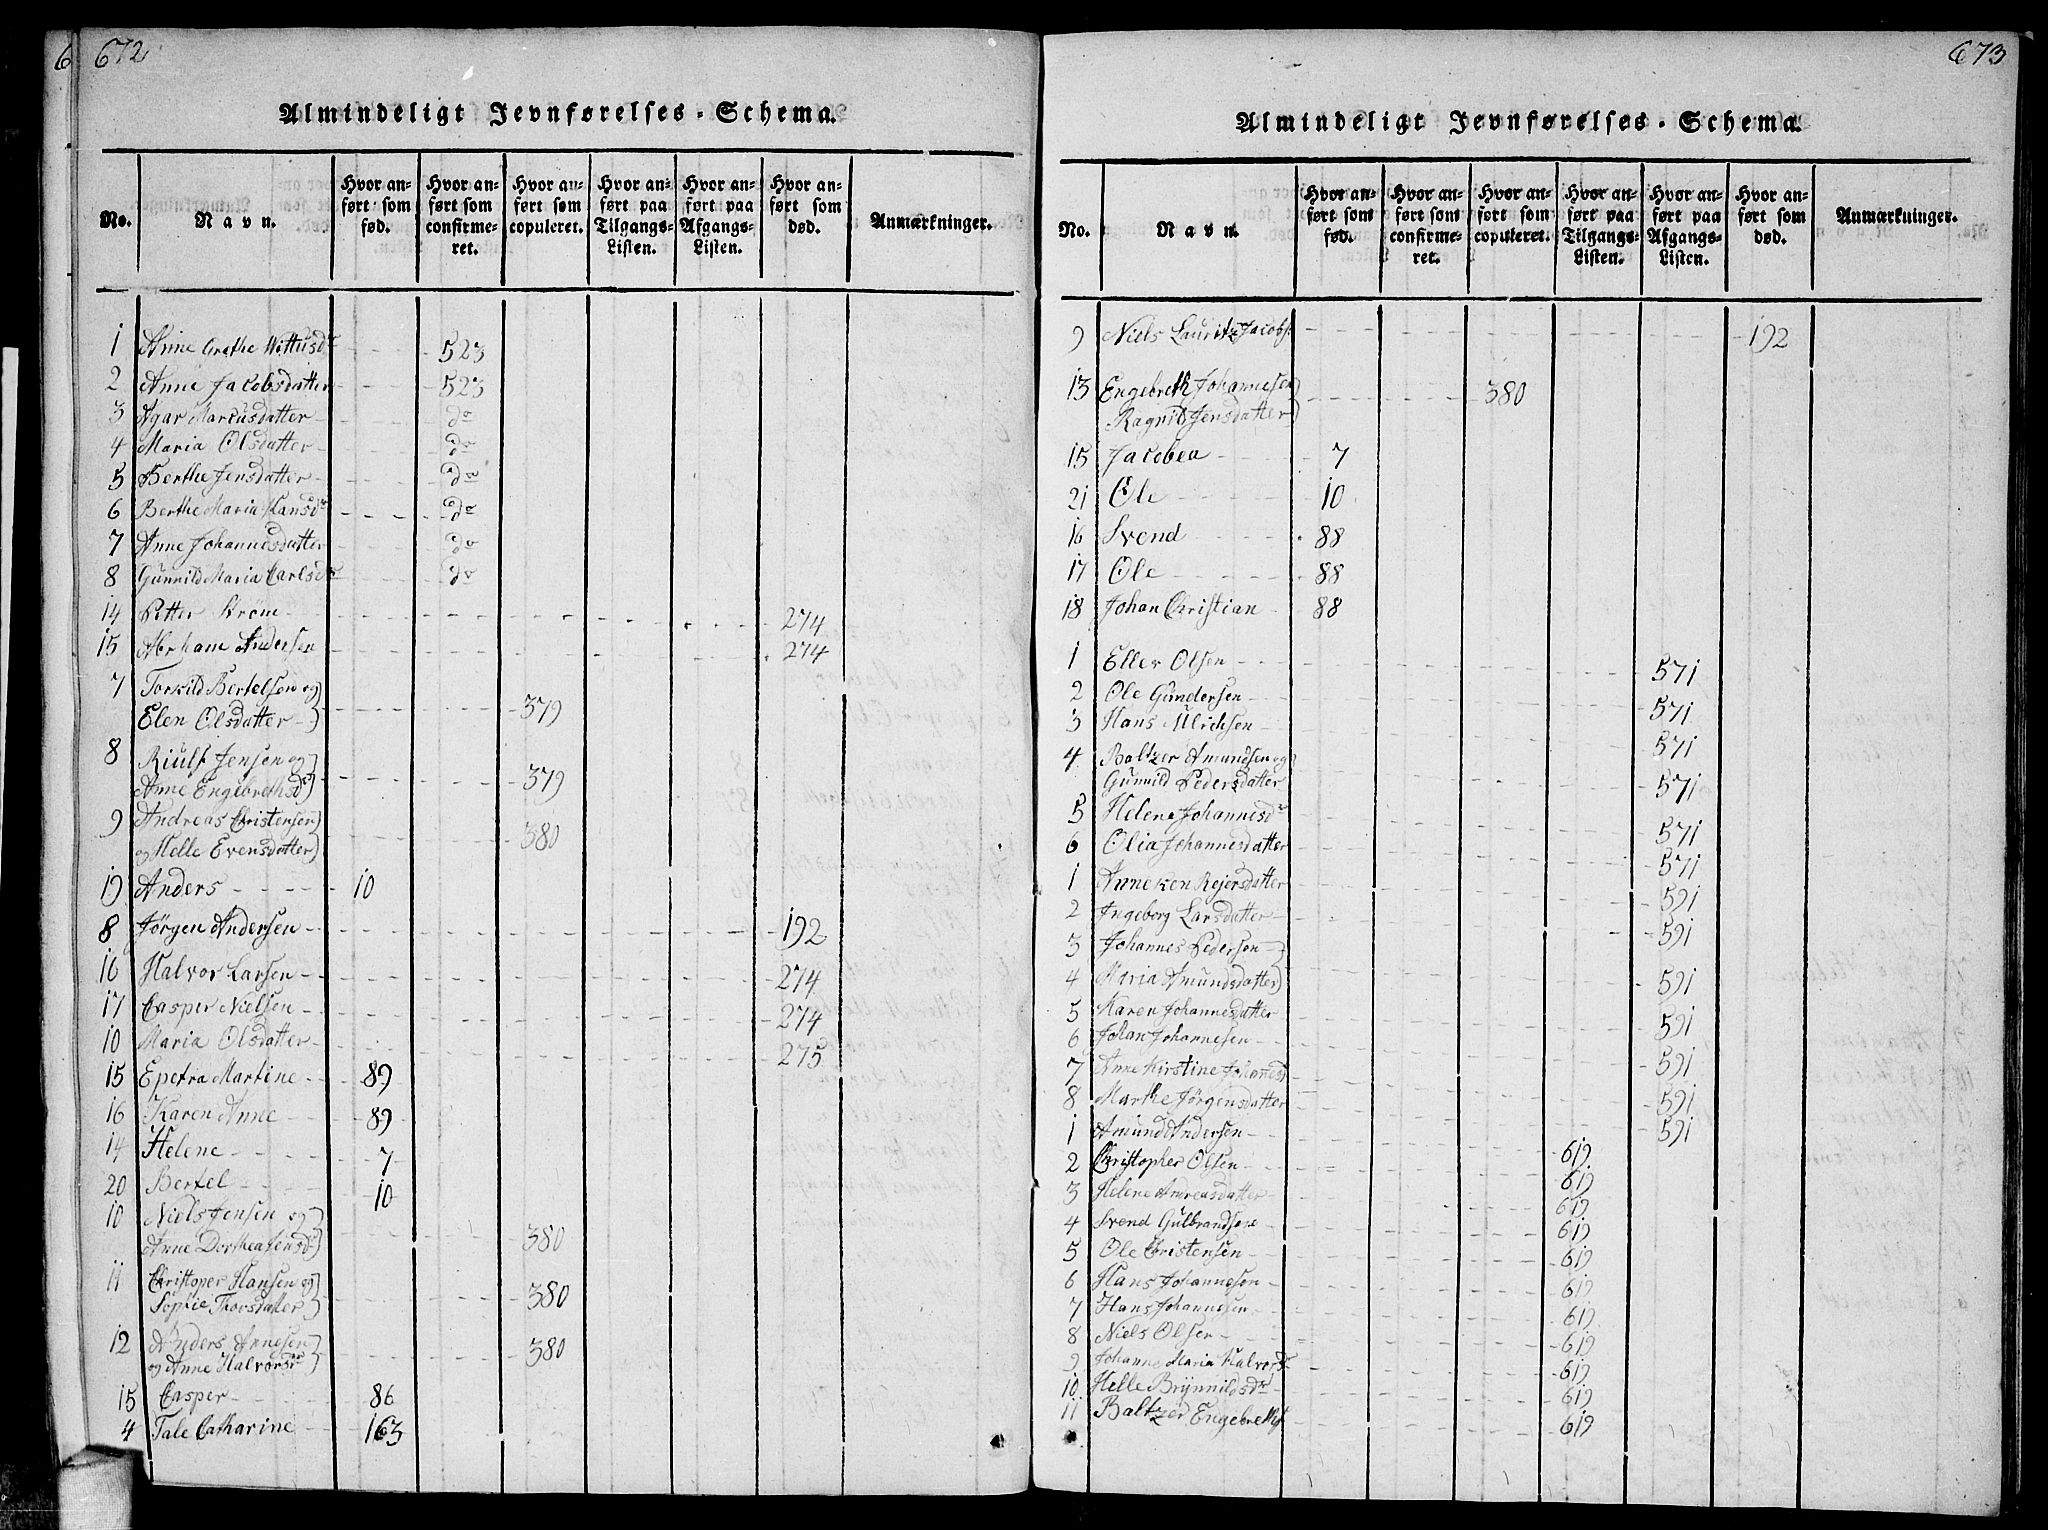 672
Almindeligt Jevnførelses-Schema.
No. Navn. Hvor anført som fød. Hvor anført som confirmeret. Hvor anført som copuleret. Hvor anført paa Tilgangs-Listen. Hvor anført paa Afgangs-Listen. Hvor anført som død. Anmærkninger.
1 Anne Grethe 523
2 Anne Jacobsdatter 523
3 Agar Marcusdatter do
4 Maria Olsdatter do
5 Berthe Jensdatter do
6 Berthe Maria Hansdr do
7 Anne Johannesdatter do
8 Gunnild Maria Carlsdr do
14 Petter Strøm 274
15 Abrham Andersen 274
7 Torkild Bertelsen og
Elen Olsdatter 379
8 Riulf Jensen og
Anne Engebrethsdr 379
9 Andreas Christensen
og Helle Evensdatter 380
19 Anders 10
8 Jørgen Andersen 192
16 Halvor Larsen 274
17 Casper Nielsen 274
10 Maria Olsdatter 275
15 Epetra Martine 89
16 Karen Anne 89
14 Helene 7
20 Bertel 10
10 Niels Jensen og
Anne Dorthea Jensdr 380
11 Christoper Hansen og
Sophie Thorsdatter 380
12 Anders Arnesen
og Anne Halvorsdr 380
15 Casper 86
4 Tale Catharine 163
673
Almindeligt Jevnførelses-Schema.
No. Navn. Hvor anført som fød. Hvor anført som confirmeret. Hvor anført som copuleret. Hvor anført paa Tilgangs-Listen. Hvor anført paa Afgangs-Listen. Hvor anført som død. Anmærkninger.
9 Niels Lauritz Jacobs. 192
13 Engebreth Johannesen 380
Ragnild Jensdatter
15 Jacobea 7
21 Ole 10
16 Svend 88
17 Ole 88
18 Johan Christian 88
1 Ellev Olsen 571
2 Ole Gundersen 571
3 Hans Ulrichsen 571
4 Baltzer Amundsen og
Gunnild Pedersdatter 571
5 Helene Johannesdr 571
6 Olia Johannesdatter 571
1 Anneken Rejersdatter 591
2 Ingeborg Larsdatter 591
3 Johannes Pedersen
4 Maria Amundsdatter 591
5 Karen Johannesdatter 591
6 Johan Johannesen 591
7 Anne Kirstine Johannesd 591
8 Marthe Jørgensdatter 591
1 Amund Andersen 619
2 Christopher Olsen 619
3 Helene Andreasdatter 619
4 Svend Gulbrandsen 619
5 Ole Christensen 619
6 Hans Johannesen 619
7 Hans Johannesen 619
8 Niels Olsen 619
9 Johanne Maria Halvors 619
10 Helle Brynnildsdr 619
11 Baltzer Engebrethsr 619